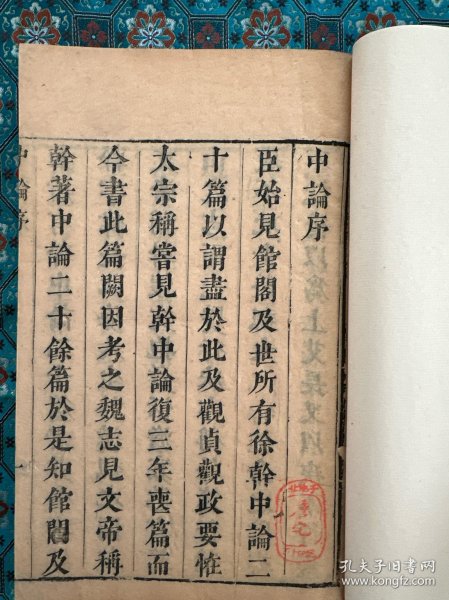 中論序
臣始見館閣及世所有徐幹中論二
十篇以謂盡於此及觀貞觀政要恠
太宗稱嘗見幹中論復三年喪篇而
今書此篇闕因考之魏志見文帝稱
幹著中論二十餘篇於是知館閣及
中論序
一
孔夫子旧书网
www.kongfz.com